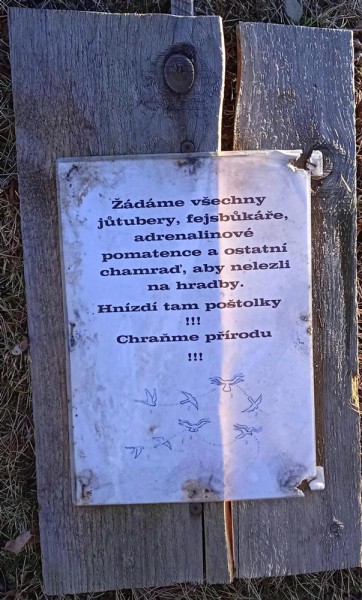 Žádáme všechny
jůtubery, fejsbůkáře,
adrenalinové
pomatence a ostatní
chamraď, aby nelezli
na hradby.
Hnízdí tam poštolky
!!!
Chraňme přírodu
!!!